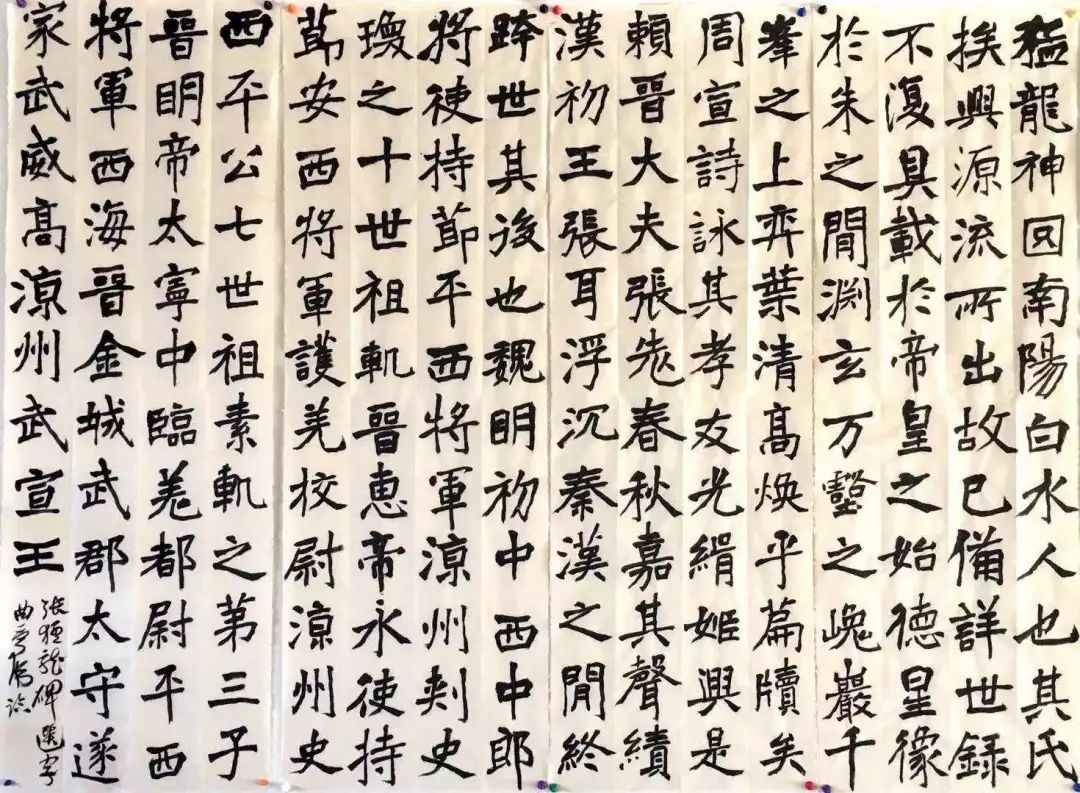 猛龍神囧南陽白水人也其氏
挨興源流所出故已備詳世錄
不復具載於帝皇之始德星像
於朱之閒淵玄万壑之峞巖千
峯之上弈葉清高煥乎篇牘矣
周宣詩詠其孝友光緝姬興是
賴晉大夫張老春秋嘉其聲續
漢初王張耳浮沉秦漢之閒終
跨世其後也魏眀初中西中郎
將使持節平西將軍涼州刺史
瓊之十世祖軌晉惠帝永使持
節安西將軍護羌校尉涼州史
西平公七世祖素軌之第三子
晉眀帝太寧中臨羌都尉平西
將軍西海晉金城武郡太守遂
家武威高涼州武宣王
張猛龍碑選字